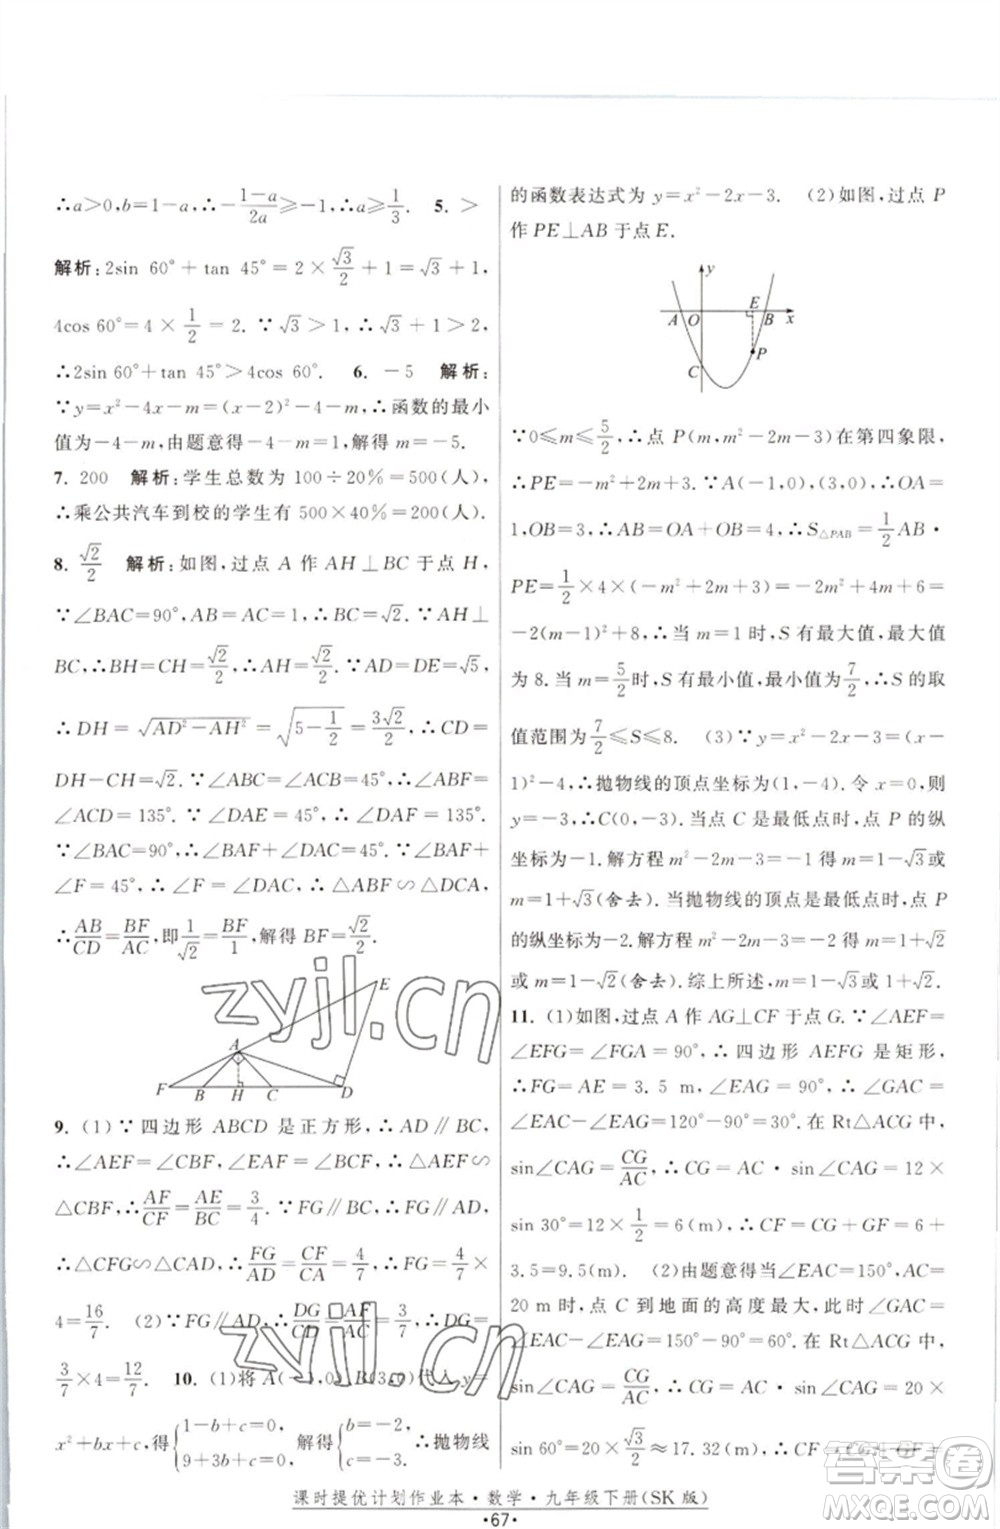 ∴a>0,b=1-a,∴-\frac{1-a}{2a}≥-1,∴a≥\frac{1}{3}. 5. >
解析:2sin 60°+tan 45°=2×\frac{\sqrt{3}}{2}+1=\sqrt{3}+1,
4cos 60°=4×\frac{1}{2}=2.∵\sqrt{3}>1,∴\sqrt{3}+1>2.
∴2sin 60°+tan 45°>4cos 60°. 6. -5 解析:
∵y=x²-4x-m=(x-2)²-4-m,∴函数的最小
值为-4-m,由题意得-4-m=1,解得m=-5.
7. 200 解析:学生总数为100÷20%=500(人),
∴乘公共汽车到校的学生有500×40%=200(人).
8. \frac{\sqrt{2}}{2} 解析:如图,过点A作AH⊥BC于点H,
∵∠BAC=90°,AB=AC=1,∴BC=\sqrt{2}.∵AH⊥
BC,∴BH=CH=\frac{\sqrt{2}}{2}.∵AD=DE=\sqrt{5},
∴DH=\sqrt{AD²-AH²}=\sqrt{5-\frac{1}{2}}=\frac{3\sqrt{2}}{2},∴CD=
DH-CH=\sqrt{2}.∵∠ABC=∠ACB=45°,∴∠ABF=
∠ACD=135°.∵∠DAE=45°,∴∠DAF=135°.
∵∠BAC=90°,∴∠BAF+∠DAC=45°.∵∠BAF+
∠F=45°,∴∠F=∠DAC,∴△ABF∽△DCA,
∴\frac{AB}{CD}=\frac{BF}{AC},即\frac{1}{\sqrt{2}}=\frac{BF}{1},解得BF=\frac{\sqrt{2}}{2}.
E
A
F B H C D
9. (1)∵四边形ABCD是正方形,∴AD∥BC,
∴∠AEF=∠CBF,∠EAF=∠BCF,∴△AEF∽
△CBF,∴\frac{AF}{CF}=\frac{AE}{BC}=\frac{3}{4}.∵FG∥BC,
∴△CFG∽△CAD,∴\frac{FG}{AD}=\frac{CF}{CA}=\frac{4}{7},∴FG=\frac{4}{7}×
4=\frac{16}{7}. (2)∵FG∥AD,∴\frac{DG}{CD}=\frac{AF}{AC}=\frac{3}{7},∴DG=
\frac{3}{7}×4=\frac{12}{7}. 10. (1)将A(-1,0),B(3,0)代入y=
x²+bx+c,得{1-b+c=0, 9+3b+c=0, 解得{b=-2, c=-3, ∴抛物线
的函数表达式为y=x²-2x-3. (2)如图,过点P
作PE⊥AB于点E.
y
E
A O B x
P
C
∵0≤m≤\frac{5}{2},∴点P(m,m²-2m-3)在第四象限,
∴PE=-m²+2m+3.∵A(-1,0),(3,0),∴OA=
1,OB=3,∴AB=OA+OB=4,∴S△PAB=\frac{1}{2}AB·
PE=\frac{1}{2}×4×(-m²+2m+3)=-2m²+4m+6=
-2(m-1)²+8,∴当m=1时,S有最大值,最大值
为8.当m=\frac{5}{2}时,S有最小值,最小值为\frac{7}{2},∴S的取
值范围为\frac{7}{2}≤S≤8. (3)∵y=x²-2x-3=(x-
1)²-4,∴抛物线的顶点坐标为(1,-4).令x=0,则
y=-3,∴C(0,-3).当点C是最低点时,点P的纵
坐标为-1.解方程m²-2m-3=-1得m=1-\sqrt{3}或
m=1+\sqrt{3}(舍去).当抛物线的顶点是最低点时,点P
的纵坐标为-2.解方程m²-2m-3=-2得m=1+\sqrt{2}
或m=1-\sqrt{2}(舍去).综上所述,m=1-\sqrt{3}或1+\sqrt{2}.
11. (1)如图,过点A作AG⊥CF于点G.∵∠AEF=
∠EFG=∠FGA=90°,∴四边形AEFG是矩形,
∴FG=AE=3.5 m,∠EAG=90°,∴∠GAC=
∠EAC-∠EAG=120°-90°=30°.在Rt△ACG中,
sin∠CAG=\frac{CG}{AC},∴CG=AC·sin∠CAG=12×
sin 30°=12×\frac{1}{2}=6(m),∴CF=CG+GF=6+
3.5=9.5(m). (2)由题意得当∠EAC=150°,AC=
20 m时,点C到地面的高度最大,此时∠GAC=
∠EAC-∠EAG=150°-90°=60°.在Rt△ACG中,
sin∠CAG=\frac{CG}{AC},∴CG=AC·sin∠CAG=20×
sin 60°=20×\frac{\sqrt{3}}{2}≈17.32(m),∴CF=CG+GF=
课时提优计划作业本·数学·九年级下册(SK版)
·67·
zyjl.cn
zyjl.cn
答案圈
MXQE.COM